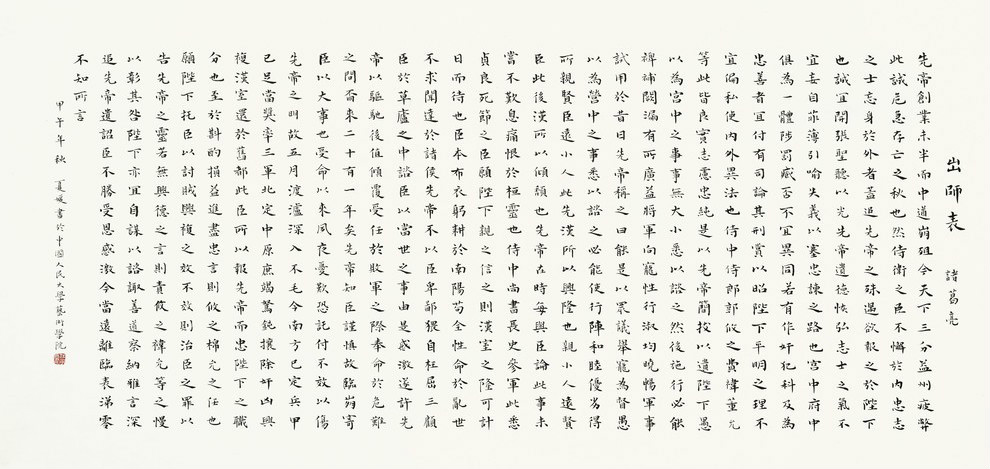 出師表 諸葛亮
先帝創業未半而中道崩殂今天下三分益州疲弊
此誠危急存亡之秋也然侍衛之臣不懈於內忠志
之士忘身於外者蓋追先帝之殊遇欲報之於陛下
也誠宜開張聖聽以光先帝遺德恢弘志士之氣不
宜妄自菲薄引喻失義以塞忠諫之路也宮中府中
俱為一體陟罰臧否不宜異同若有作奸犯科及為
忠善者宜付有司論其刑賞以昭陛下平明之理不
宜偏私使內外異法也侍中侍郎郭攸之費禕董允
等此皆良實志慮忠純是以先帝簡拔以遺陛下愚
以為宮中之事事無大小悉以諮之然後施行必能
裨補闕漏有所廣益將軍向寵性行淑均曉暢軍事
試用於昔日先帝稱之曰能是以眾議舉寵為督愚
以為營中之事悉以諮之必能使行陣和睦優劣得
所親賢臣遠小人此先漢所以興隆也親小人遠賢
臣此後漢所以傾頹也先帝在時每與臣論此事未
嘗不歎息痛恨於桓靈也侍中尚書長史參軍此悉
貞良死節之臣願陛下親之信之則漢室之隆可計
日而待也臣本布衣躬耕於南陽苟全性命於亂世
不求聞達於諸侯先帝不以臣卑鄙猥自枉屈三顧
臣於草廬之中諮臣以當世之事由是感激遂許先
帝以驅馳後值傾覆受任於敗軍之際奉命於危難
之間爾來二十有一年矣先帝知臣謹慎故臨崩寄
臣以大事也受命以來夙夜憂歎恐託付不效以傷
先帝之明故五月渡瀘深入不毛今南方已定兵甲
已足當獎率三軍北定中原庶竭駑鈍攘除奸凶興
複漢室還於舊都此臣所以報先帝而忠陛下之職
分也至於斟酌損益進盡忠言則攸之禕允之任也
願陛下托臣以討賊興複之效不效則治臣之罪以
告先帝之靈若無興德之言則責攸之禕允等之慢
以彰其咎陛下亦宜自謀以諮諏善道察納雅言深
追先帝遺詔臣不勝受恩感激今當遠離臨表涕零
不知所言
甲午年秋 夏媛書於中國人民大學藝術學院